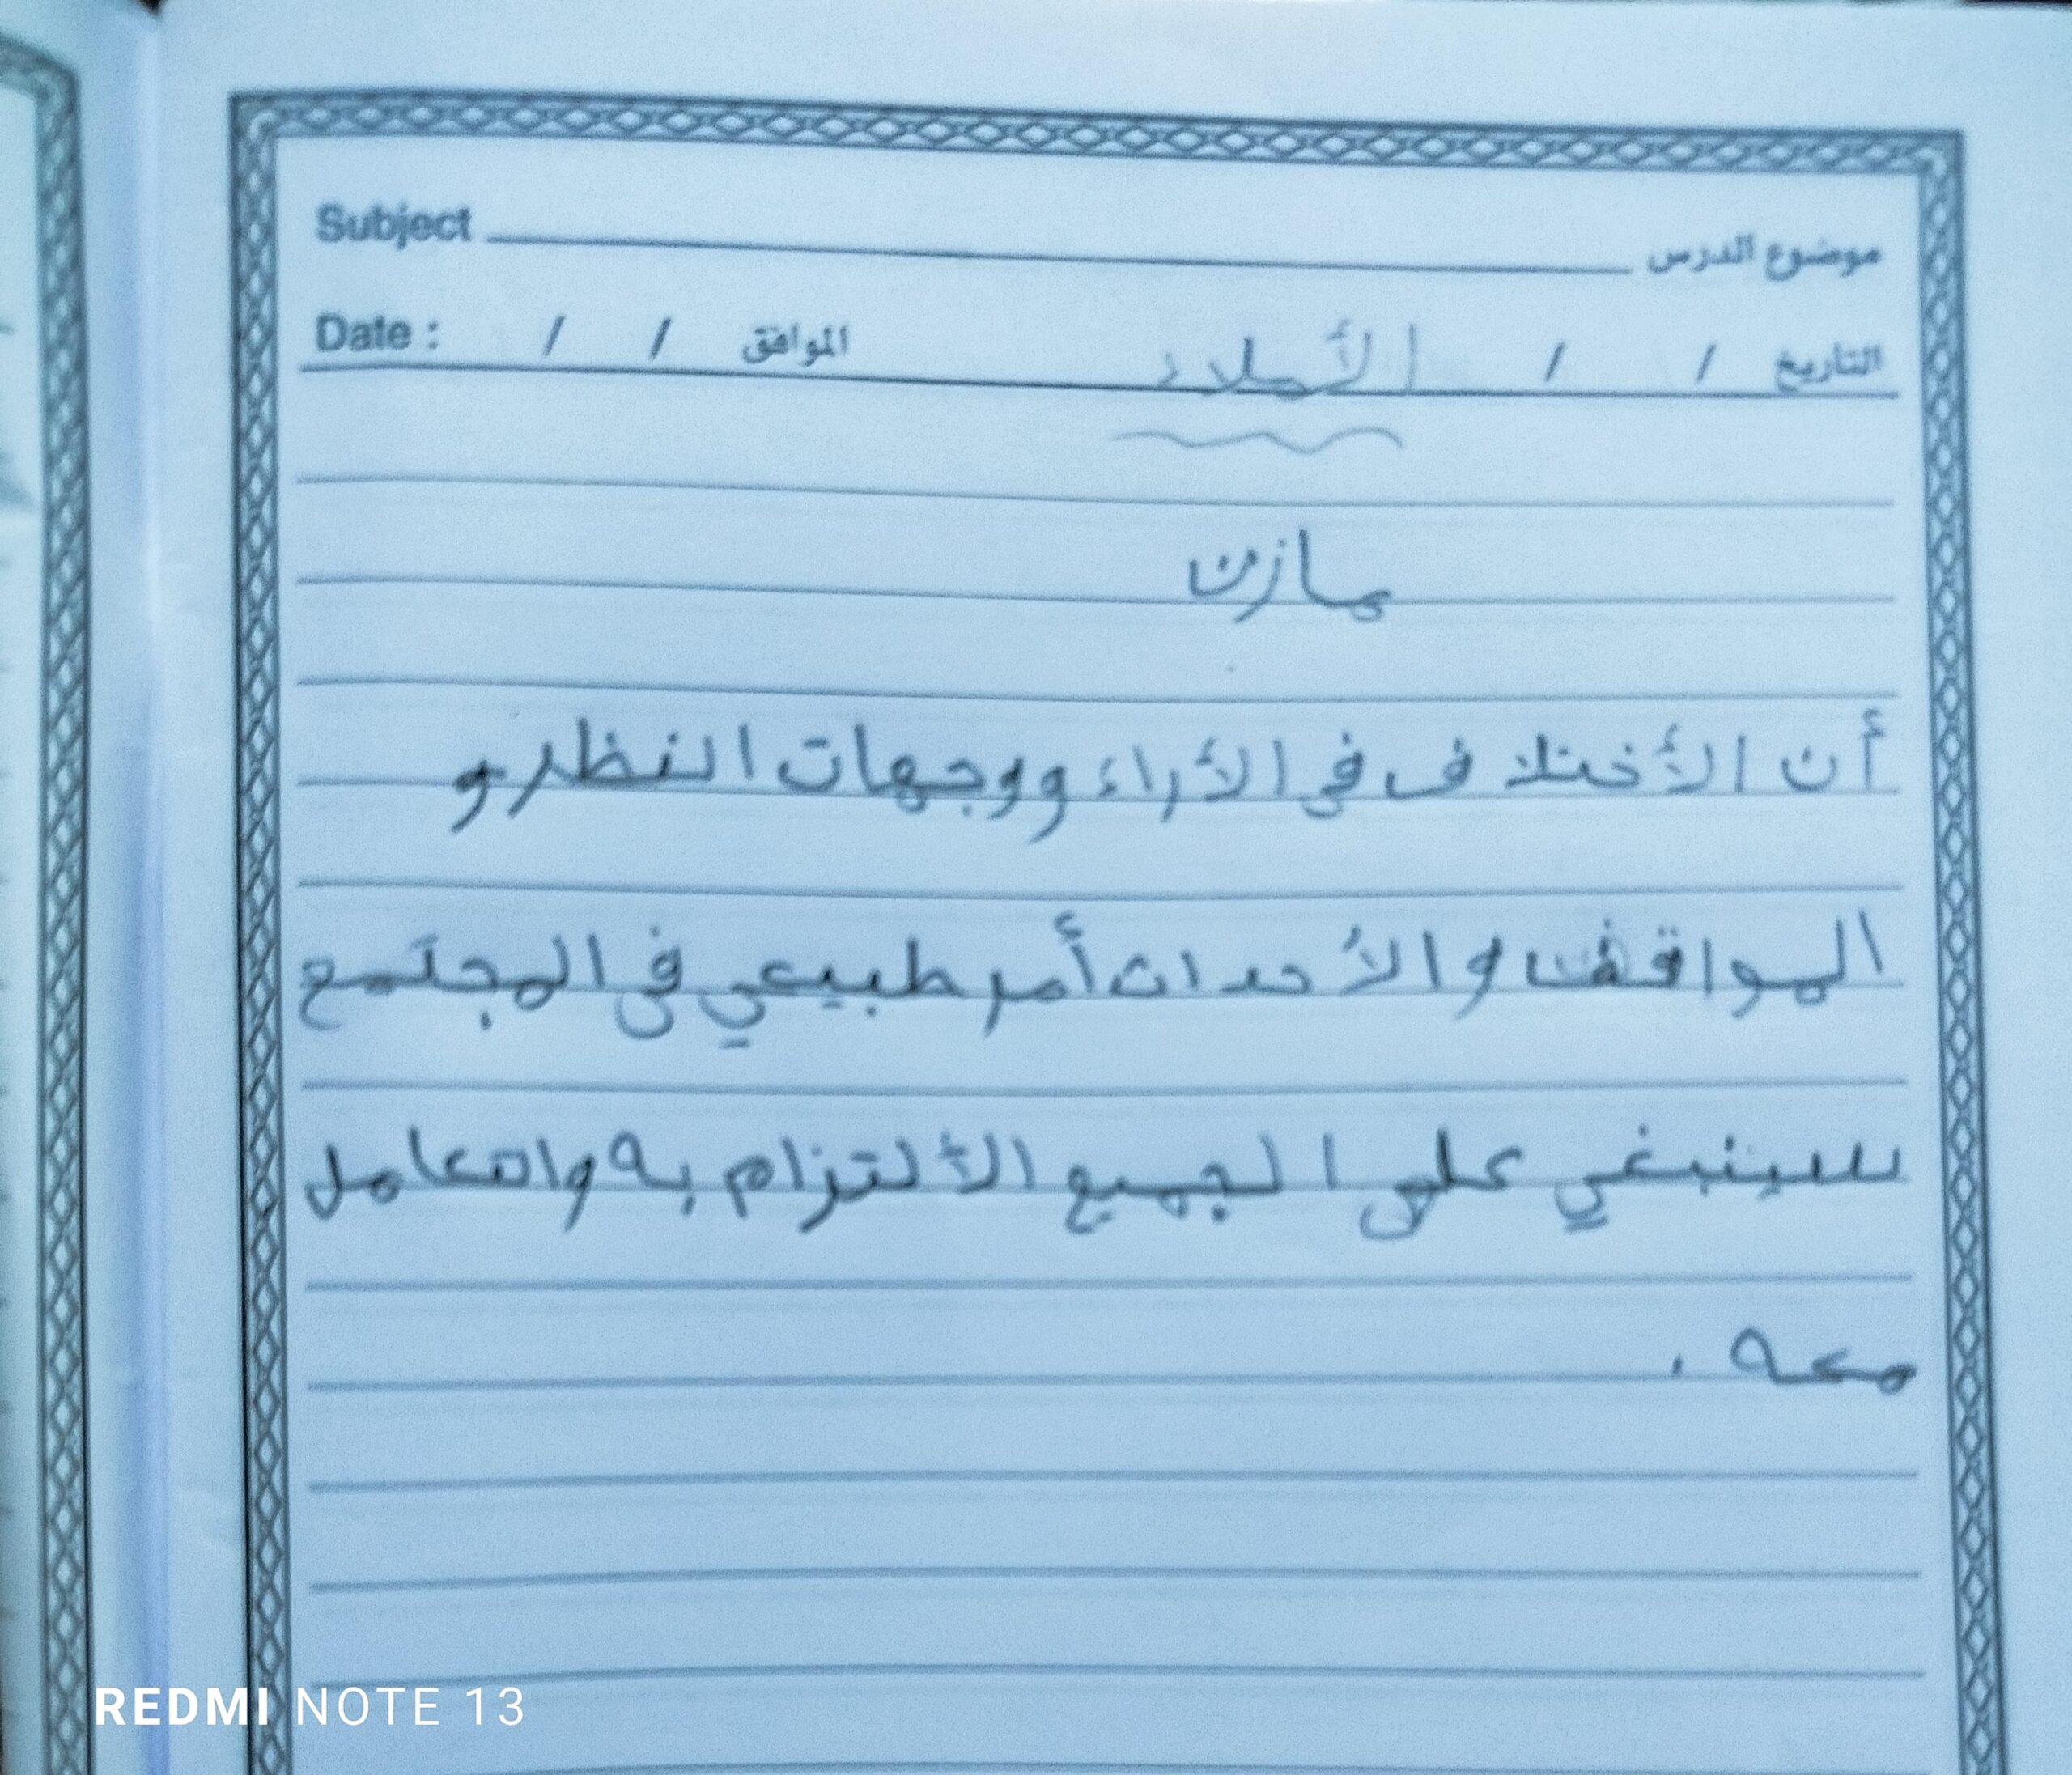 Subject موضوع الدرس
Date : / / الموافق / / التاريخ
الأملاء
مازن
أن الأختلاف في الأراء ووجهات النظر و
المواقف والأحداث أمر طبيعي في المجتمع
للينبغي على الجميع الألتزام به والتعامل
معه .
REDMI NOTE 13